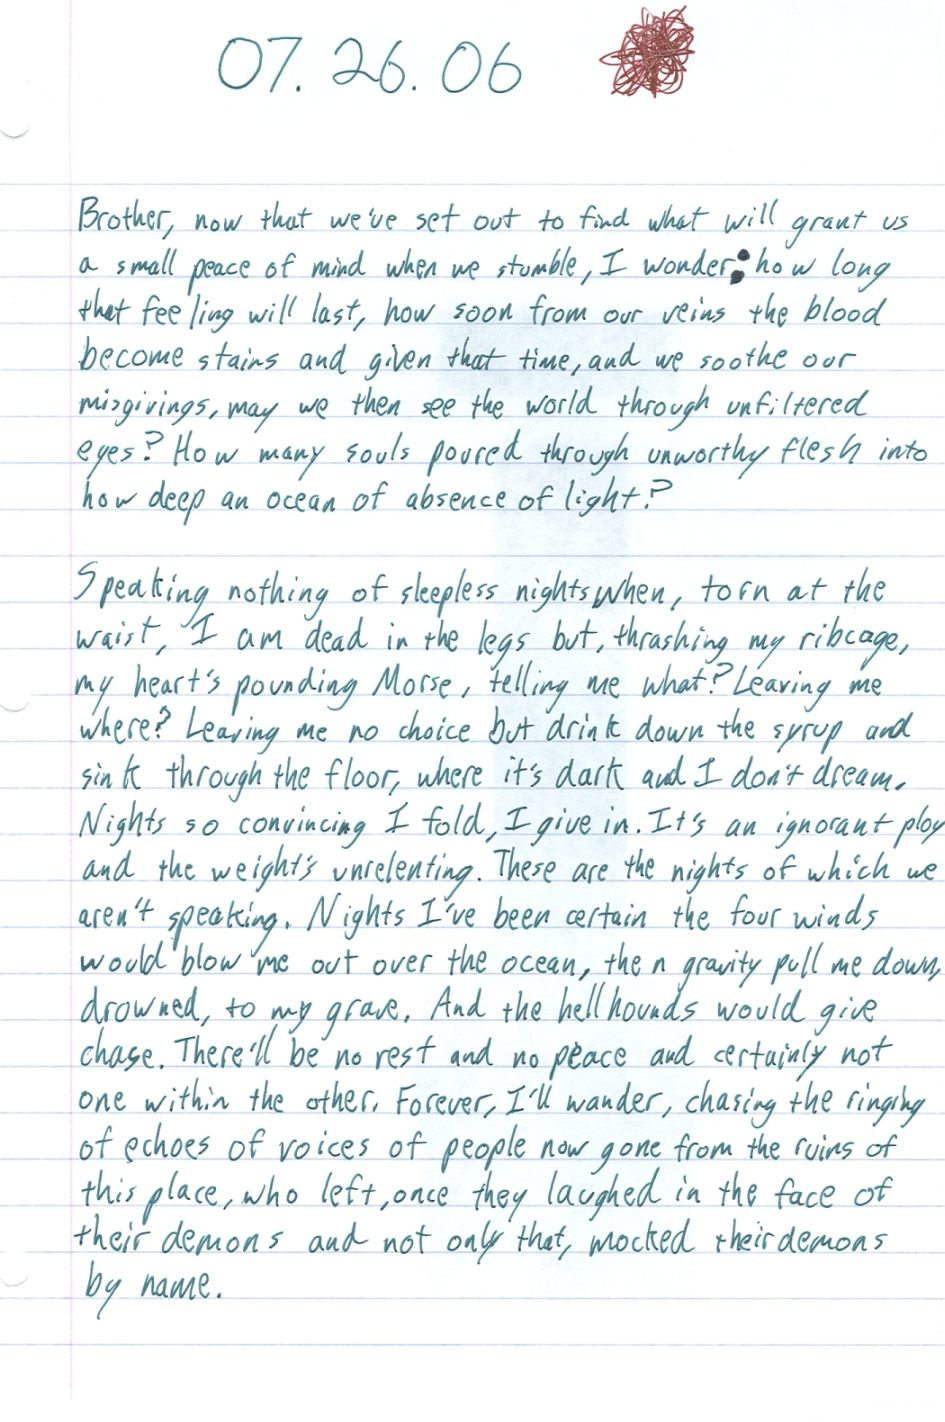 07.26.06
Brother, now that we've set out to find what will grant us
a small peace of mind when we stumble, I wonder; how long
that feeling will last, how soon from our veins the blood
become stains and given that time, and we soothe our
misgivings, may we then see the world through unfiltered
eyes? How many souls poured through unworthy flesh into
how deep an ocean of absence of light?
Speaking nothing of sleepless nights when, torn at the
waist, I am dead in the legs but, thrashing my ribcage,
my heart's pounding Morse, telling me what? Leaving me
where? Leaving me no choice but drink down the syrup and
sink through the floor, where it's dark and I don't dream.
Nights so convincing I fold, I give in. It's an ignorant ploy
and the weight's unrelenting. These are the nights of which we
aren't speaking. Nights I've been certain the four winds
would blow me out over the ocean, then gravity pull me down,
drowned, to my grave. And the hellhounds would give
chase. There'll be no rest and no peace and certainly not
one within the other. Forever, I'll wander, chasing the ringing
of echoes of voices of people now gone from the ruins of
this place, who left, once they laughed in the face of
their demons and not only that, mocked their demons
by name.